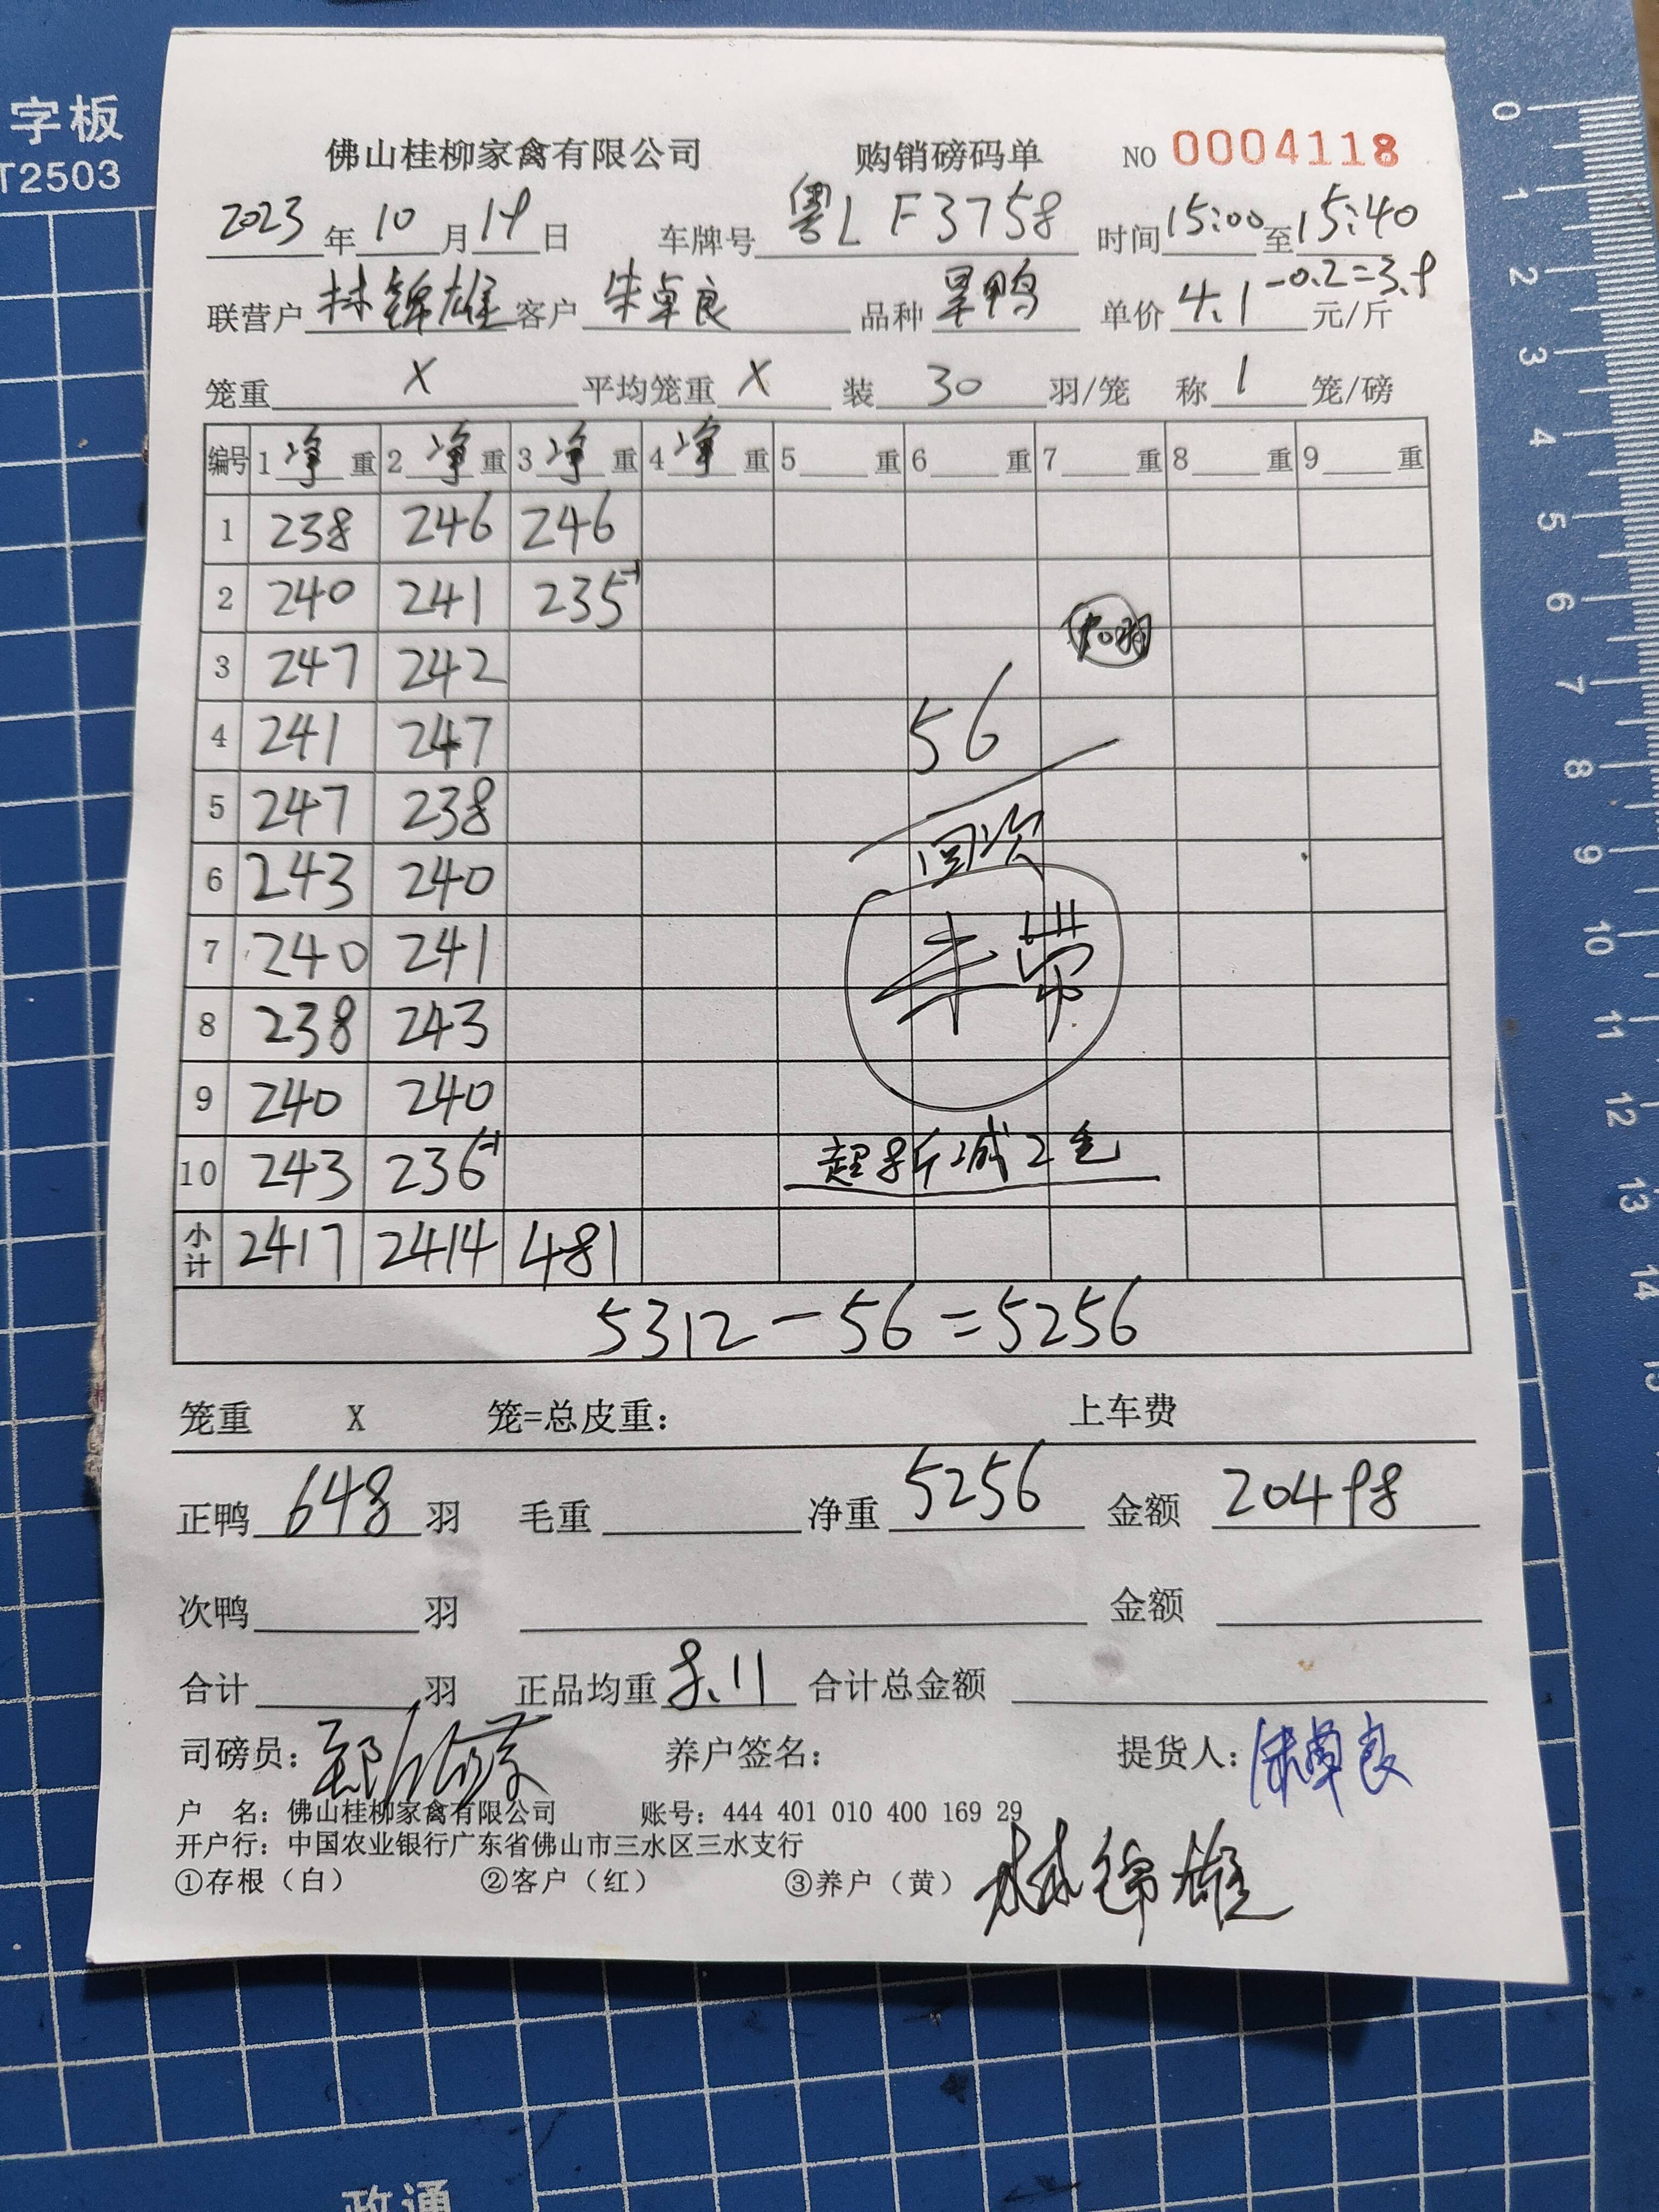 字板
T2503
佛山桂柳家禽有限公司 购销磅码单 NO 0004118
2023年10月19日 车牌号 粤L F3758 时间15:00至15:40
联营户 林锦雄 客户 朱卓良 品种 旱鸭 单价 4.1-0.2=3.9 元/斤
笼重 X 平均笼重 X 装 30 羽/笼 称 1 笼/磅
编号 1净重 2净重 3净重 4净重 5 重 6 重 7 重 8 重 9 重
1 238 246 246
2 240 241 235-1
3 247 242
4 241 247
56
5 247 238
6 243 240
回次
7 240 241
8 238 243
9 240 240
10 243 236-1
超8斤减2毛
小计 2417 2414 481
5312-56=5256
笼重 X 笼=总皮重: 上车费
正鸭 648 羽 毛重 净重 5256 金额 20498
次鸭 羽 金额
合计 羽 正品均重 8.11 合计总金额
司磅员: 养户签名: 提货人: 朱卓良
户 名: 佛山桂柳家禽有限公司 账号: 444 401 010 400 169 29
开户行: 中国农业银行广东省佛山市三水区三水支行
①存根(白) ②客户(红) ③养户(黄) 林锦雄
0
1
2
3
4
5
6
7
8
9
10
11
12
13
14
15
政通